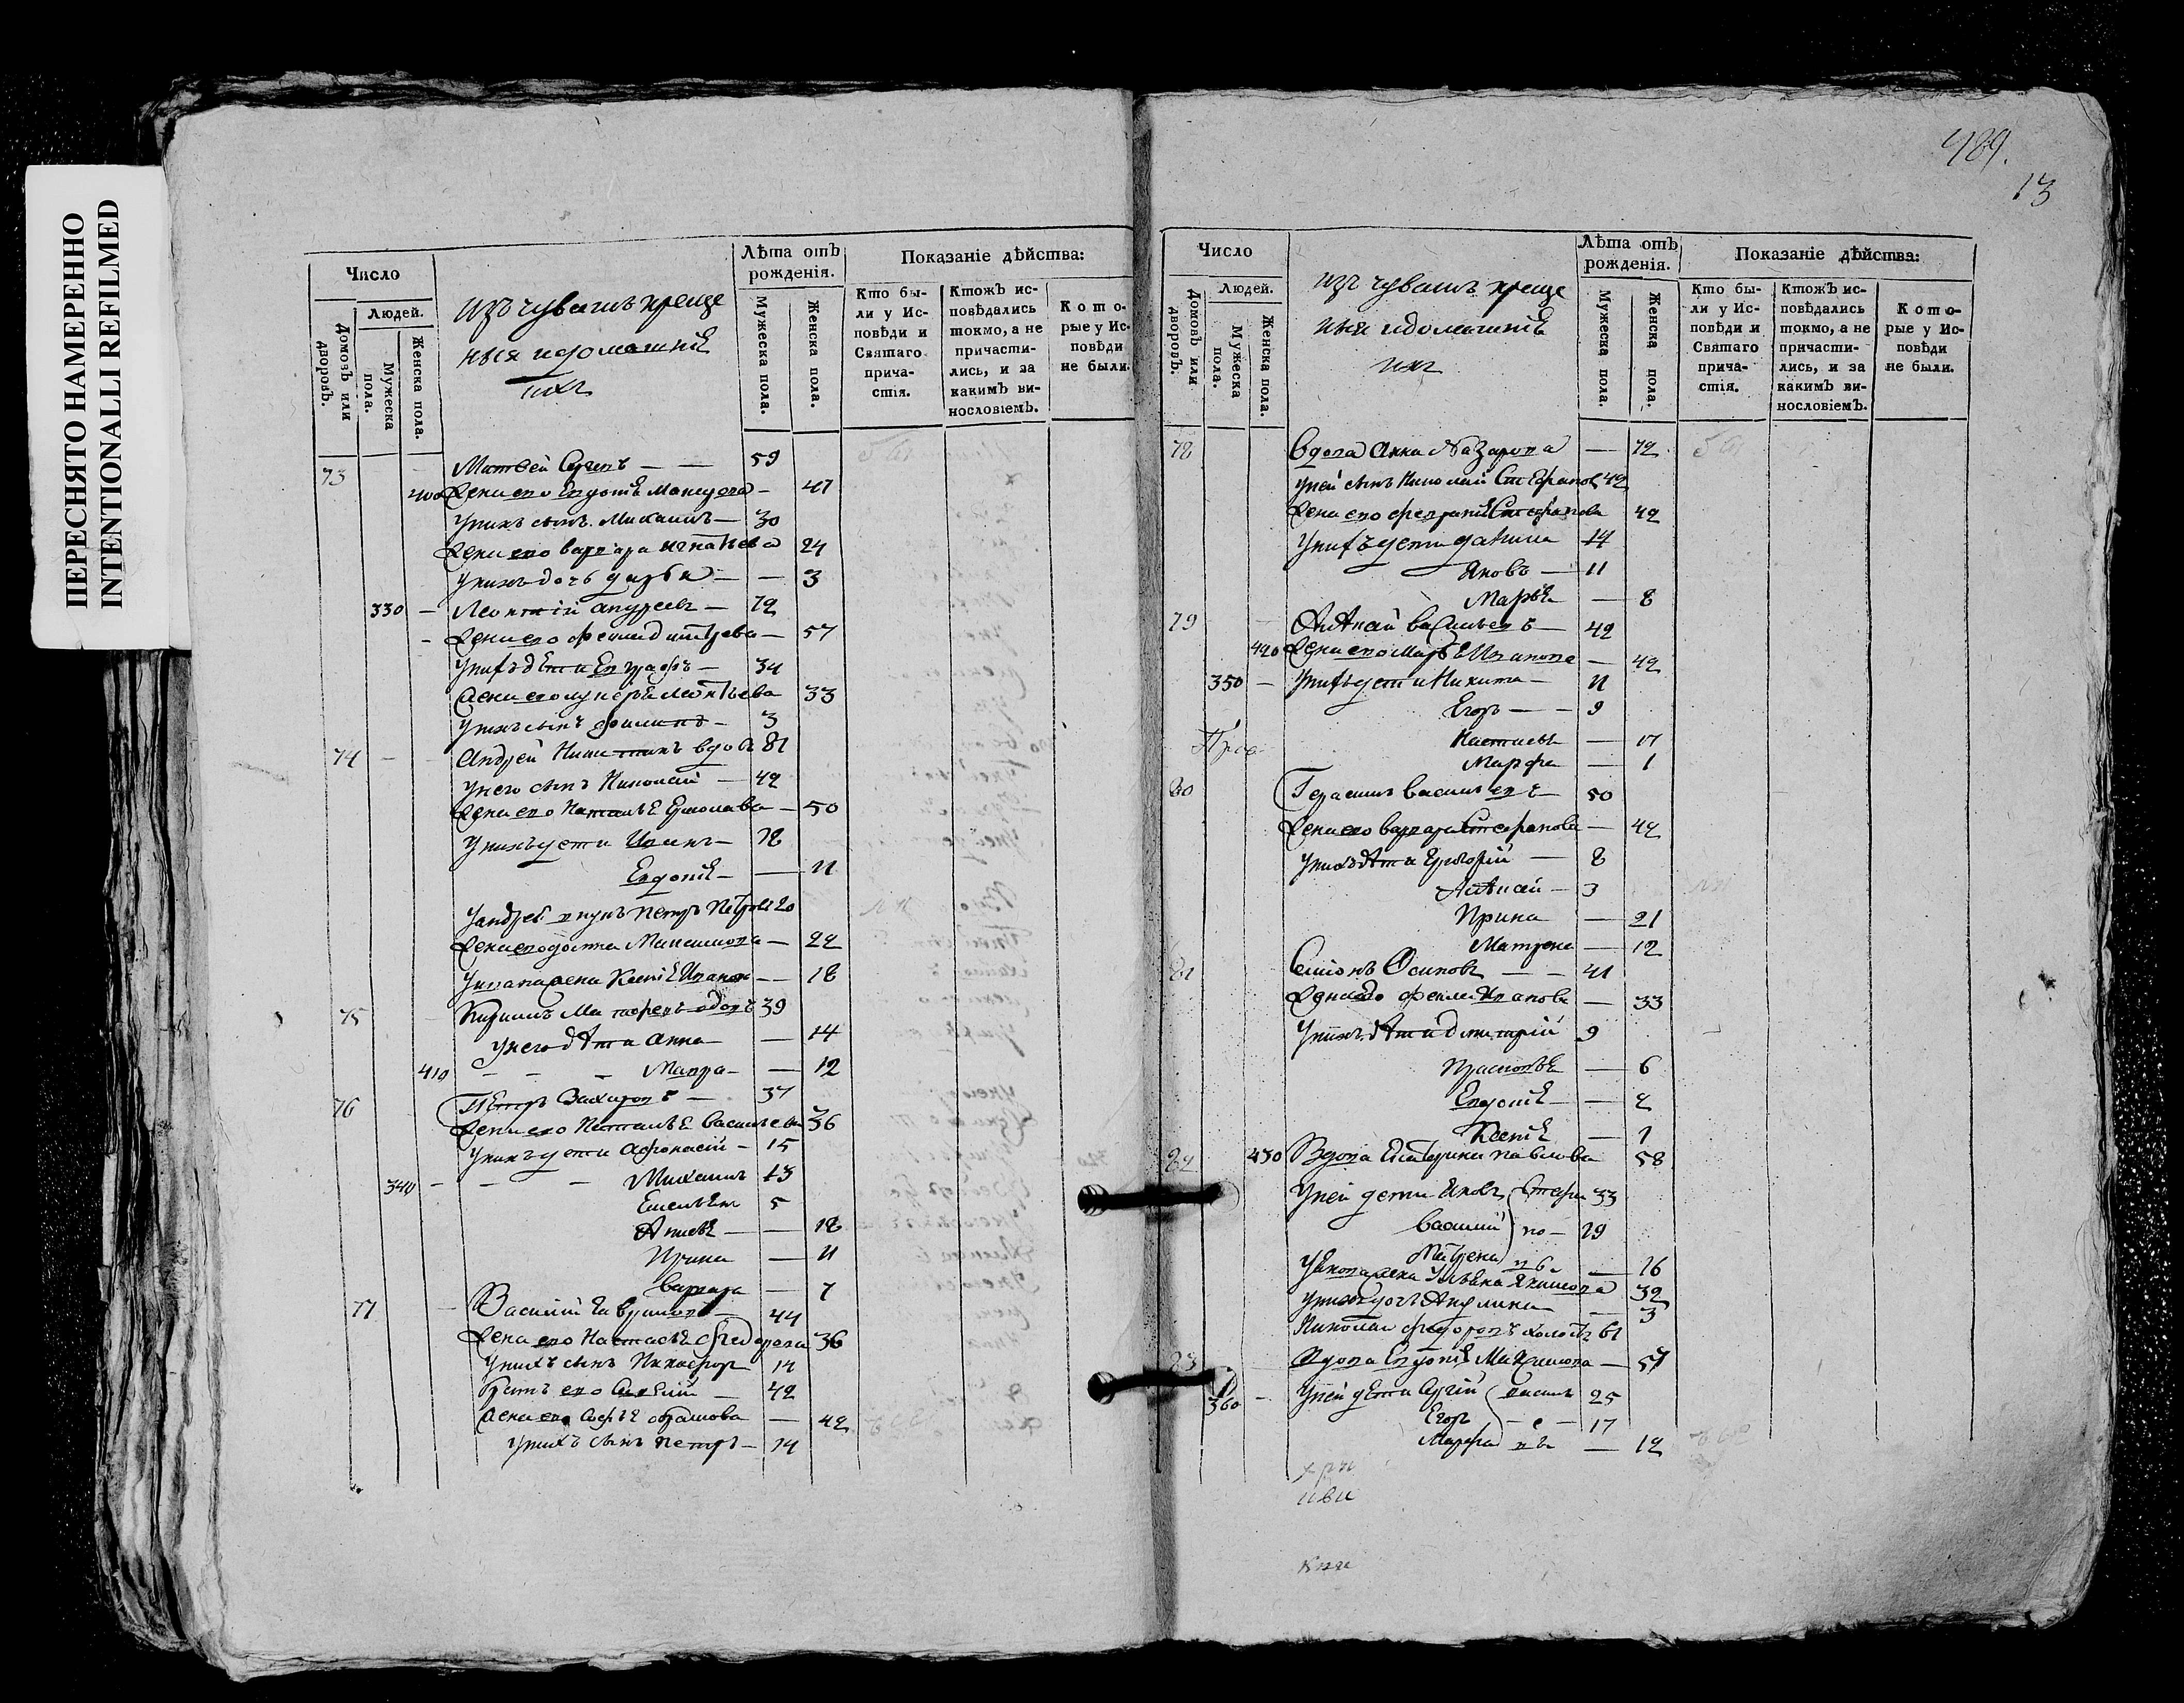 ПЕРЕСНЯТО НАМЕРЕННО
INTENTIONALLI REFILMED
Число
Людей.
Домовъ или дворовъ.
Мужеска пола.
Женска пола.
изъ чувашъ креще
ныя идомашніе
ихъ
Лѣта отъ рожденія.
Мужеска пола.
Женска пола.
Показаніе дѣйства:
Кто были у Исповѣди и Святаго причастія.
Ктожъ исповѣдались токмо, а не причастились, и за какимъ винословіемъ.
Которые у Исповѣди не были.
73 Матвей 59
400 Жена его Евдотья 47
Унихъ сынъ Михаилъ 30
Жена его варвара игнатьева 24
Унихъ дочь дарья 3
330 Леонтій андреевъ 72
Жена его фекла дмитрева 57
Унихъ дети Евграфъ 34
Жена его лукерья леонтьева 33
Унихъ сынъ филипъ 3
74 Андрей Никитинъ вдовъ 81
Унего сынъ Николай 42
Жена его Наталья Ермолаева 50
Унихъ дети Иванъ 18
Евдотья 11
Уандрея внукъ петръ Петровъ 20
Жена его Максимова 22
Уивана жена Ксенія Иванова 18
75 Кирилъ вдовъ 39
Унего дети анна 14
410 Мавра 12
76 Петръ Захаровъ 37
Жена его Наталья васильева 36
Унихъ дети афонасій 15
340 Михаилъ 13
Емельянъ 5
Анисья 18
Ирина 11
варвара 7
77 Василій Гавриловъ 44
Жена его Настасья федорова 36
Унихъ сынъ Никифоръ 14
братъ его 42
Жена его Софья абрамова 42
Унихъ сынъ петръ 14
489.
13
Число
Людей.
Домовъ или дворовъ.
Мужеска пола.
Женска пола.
изъ чувашъ креще
ныя идомашніе
ихъ
Лѣта отъ рожденія.
Мужеска пола.
Женска пола.
Показаніе дѣйства:
Кто были у Исповѣди и Святаго причастія.
Ктожъ исповѣдались токмо, а не причастились, и за какимъ винословіемъ.
Которые у Исповѣди не были.
78 вдова анна Назарова 72
Уней сынъ Николай Стефановъ 42
Жена его Стефанова 42
Унихъ дети данила 14
Яковъ 11
Марья 8
79 Алѣксѣй васильевъ 42
420 Жена его Марья Иванова 42
350 Унихъ дети Никита 11
Егоръ 9
Настасья 17
Марфа 1
80 Герасимъ васильевъ 50
Жена его варвара Стефанова 42
Унихъ дѣти Григорій 8
Алѣксѣй 3
Ирина 21
Матрена 12
81 Семіонъ Осиповъ 41
Жена его фекла Иванова 33
Унихъ дѣти дмитрій 9
Прасковья 6
Евдотья 2
Ксенія 1
430 Вдова Екатерина павлова 58
Уней дети Яковъ Стефа 33
василій но 29
Матрена вы 16
Уякова жена Ульяна 32
Унихъ дочь 3
Николай федоровъ холостъ 61
83 Вдова Евдотья 57
360 Уней дѣти Сергій васил 25
Егоръ е 17
Марфа вы 12